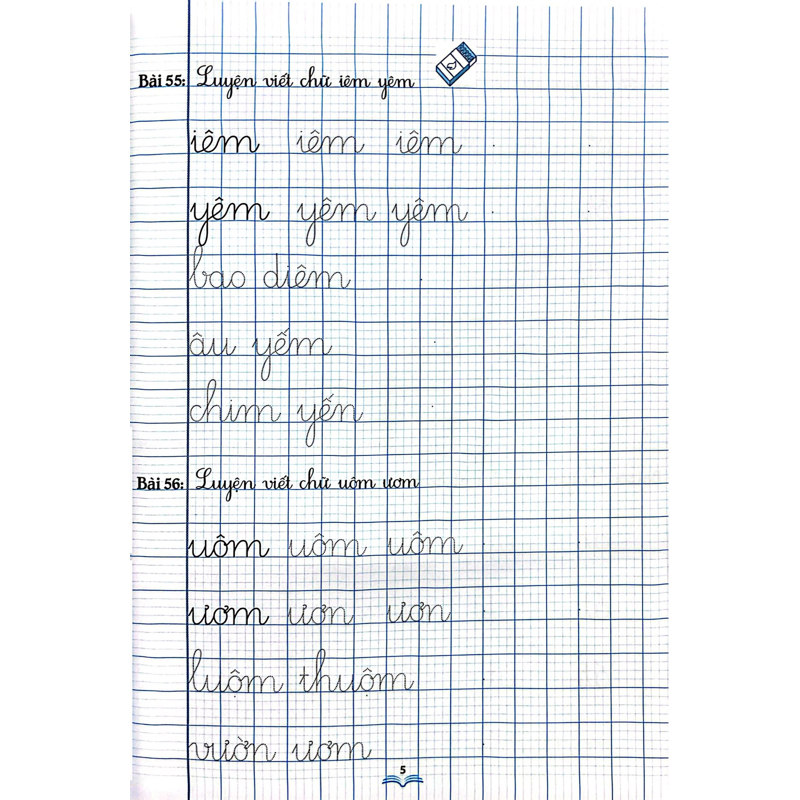 Bài 55: Luyện viết chữ iêm yêm
iêm iêm iêm
yêm yêm yêm
bao diêm
âu yếm
chim yến
Bài 56: Luyện viết chữ uôm ươm
uôm uôm uôm
ươm ươn ươn
luộm thuộm
vườn ươm
5